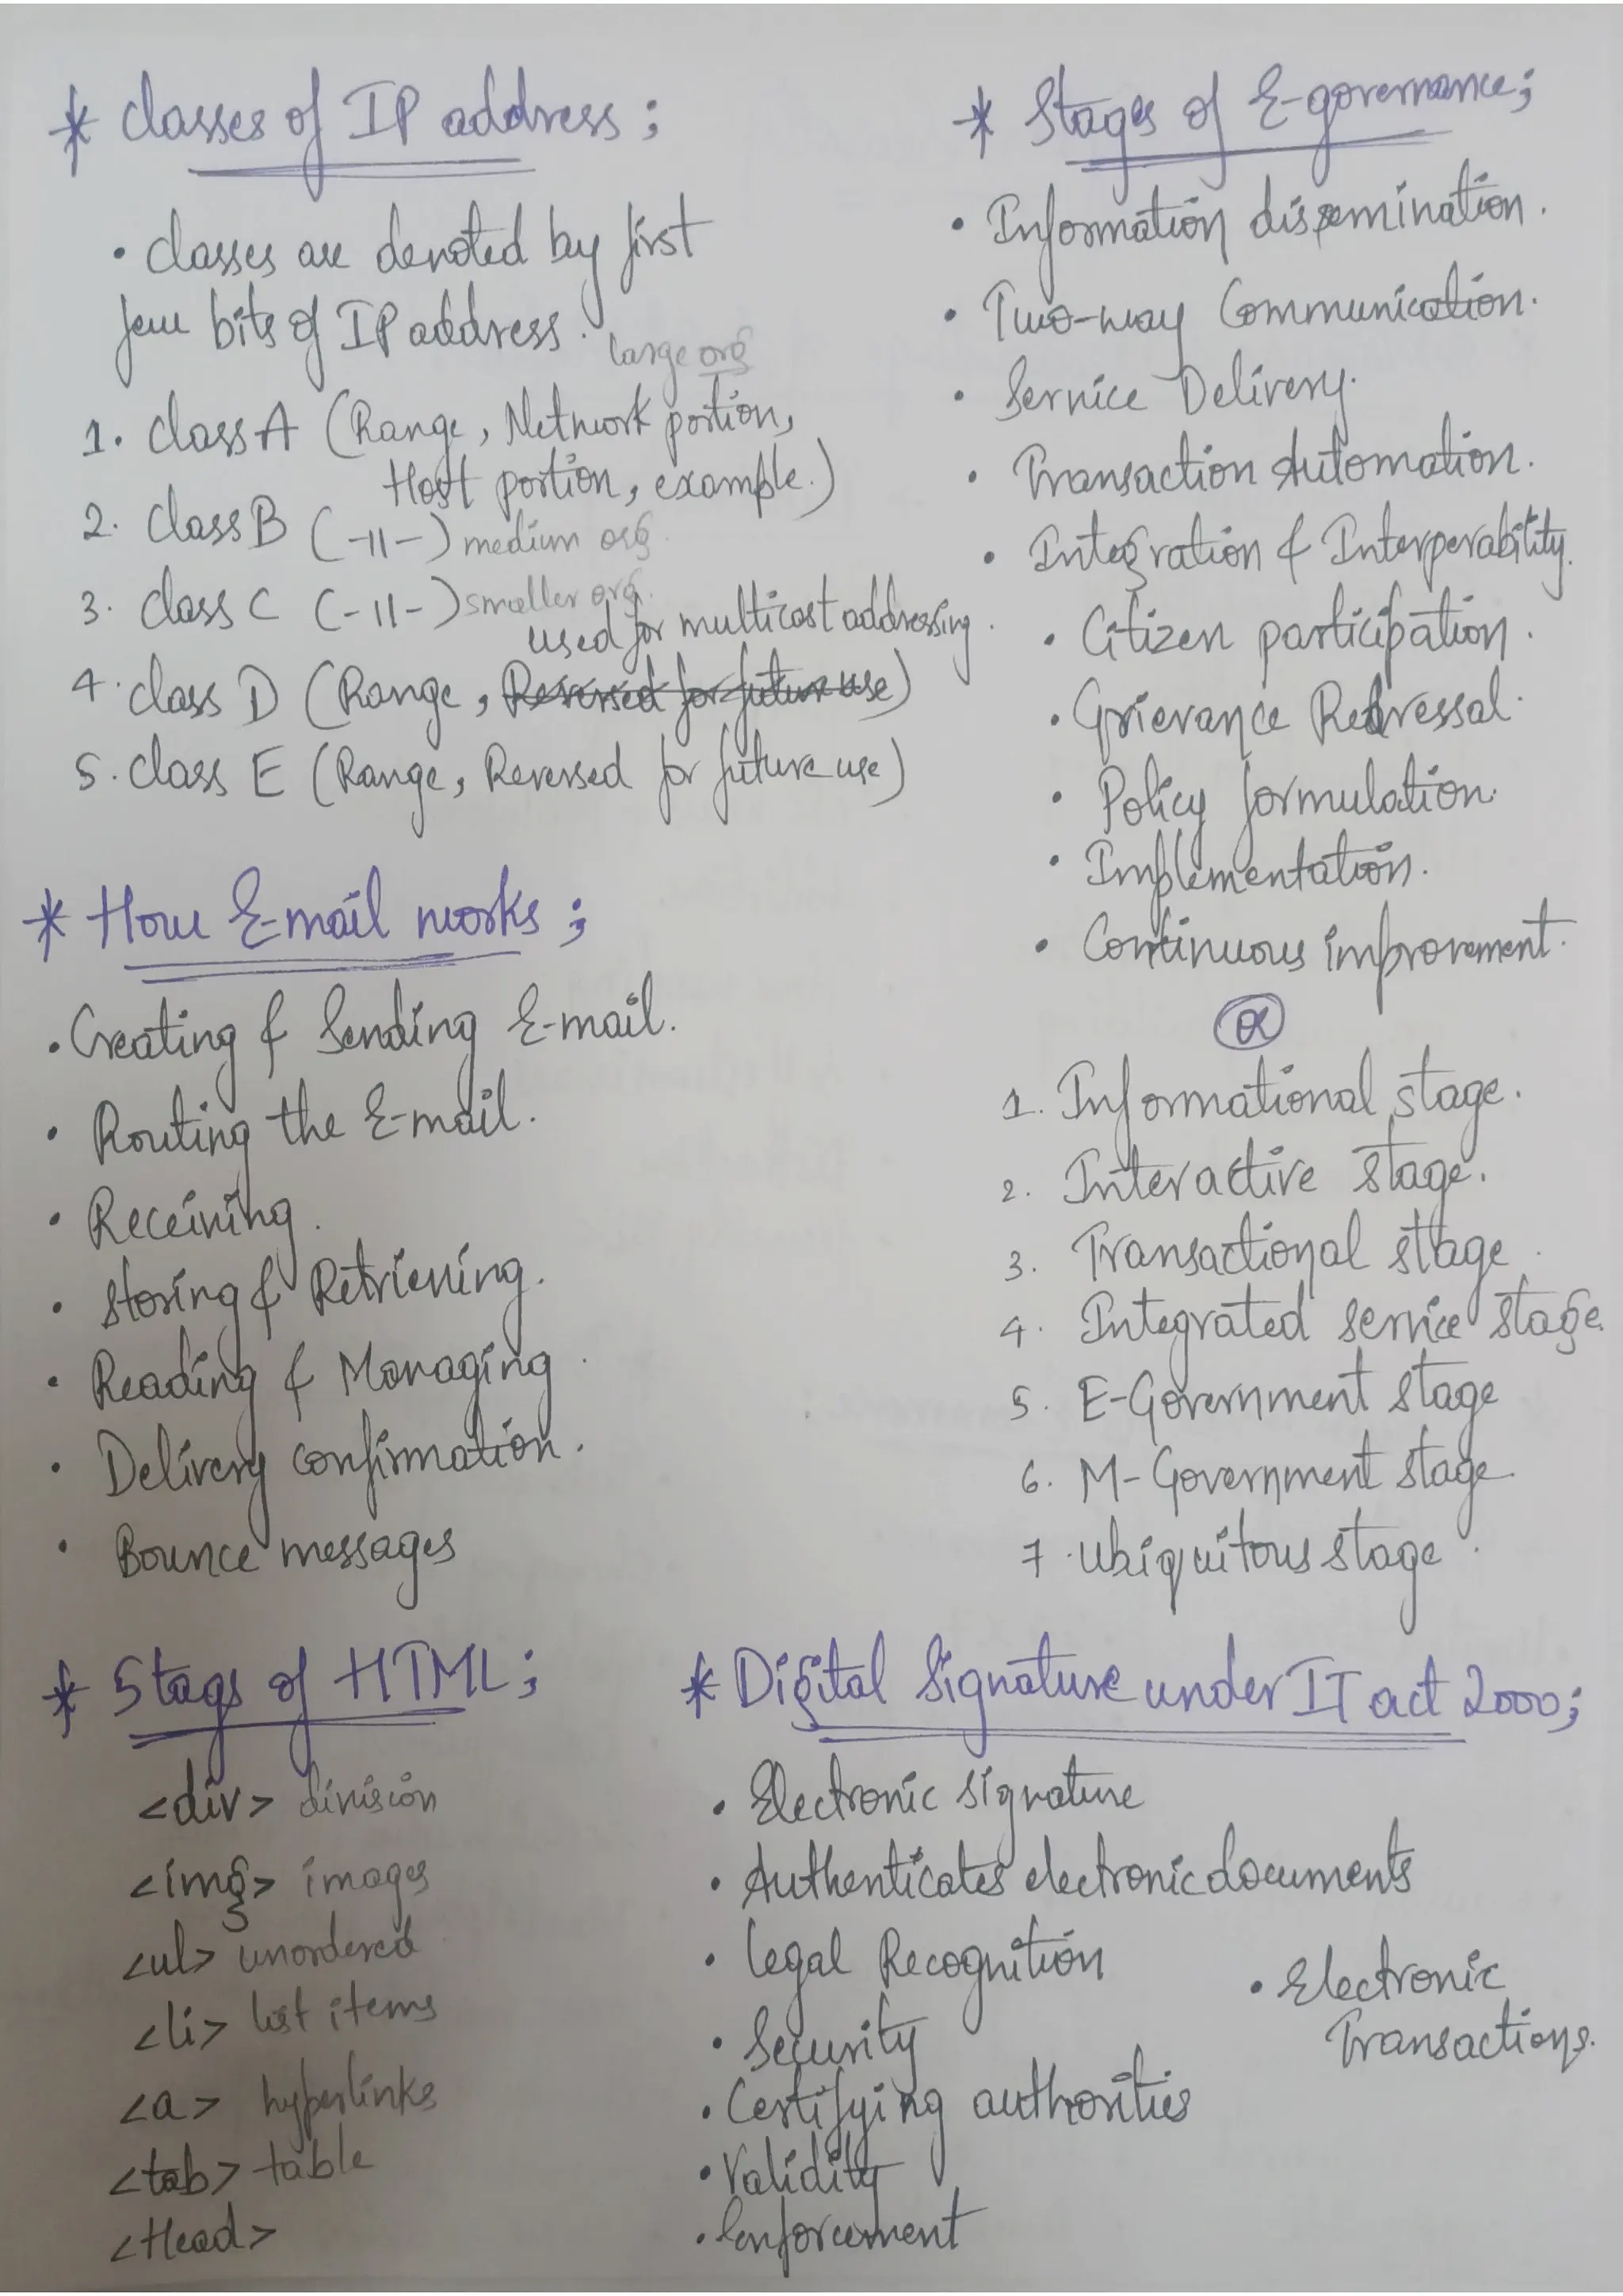 * Classes of IP address ;
• Classes are denoted by first
few bits of IP address.
large org
1. Class A (Range, Network portion,
Host portion, example.)
2. Class B (-11-) medium org.
3. Class C (-11-) smaller org.
used for multicast addressing.
4. Class D (Range, Reversed for future use)
5. Class E (Range, Reversed for future use)
* How E-mail works ;
• Creating & Sending E-mail.
• Routing the E-mail.
• Receiving.
• Storing & Retrieving.
• Reading & Managing.
• Delivery confirmation.
• Bounce messages
* 5 tags of HTML ;
<div> division
<img> images
<ul> unordered
<li> list items
<a> hyperlinks
<tab> table
<Head>
* Stages of E-governance;
• Information dissemination.
• Two-way Communication.
• Service Delivery.
• Transaction Automation.
• Integration & Interperability.
• Citizen participation.
• Grievance Redressal.
• Policy formulation.
• Implementation.
• Continuous improvement.
OR
1. Informational stage.
2. Interactive stage.
3. Transactional stage.
4. Integrated service stage.
5. E-Government stage
6. M-Government stage.
7. Ubiquitous stage.
* Digital Signature under IT act 2000;
• Electronic signature
• Authenticates electronic documents
• Legal Recognition
• Security
• Certifying authorities
• Validity
• Enforcement
• Electronic
Transactions.